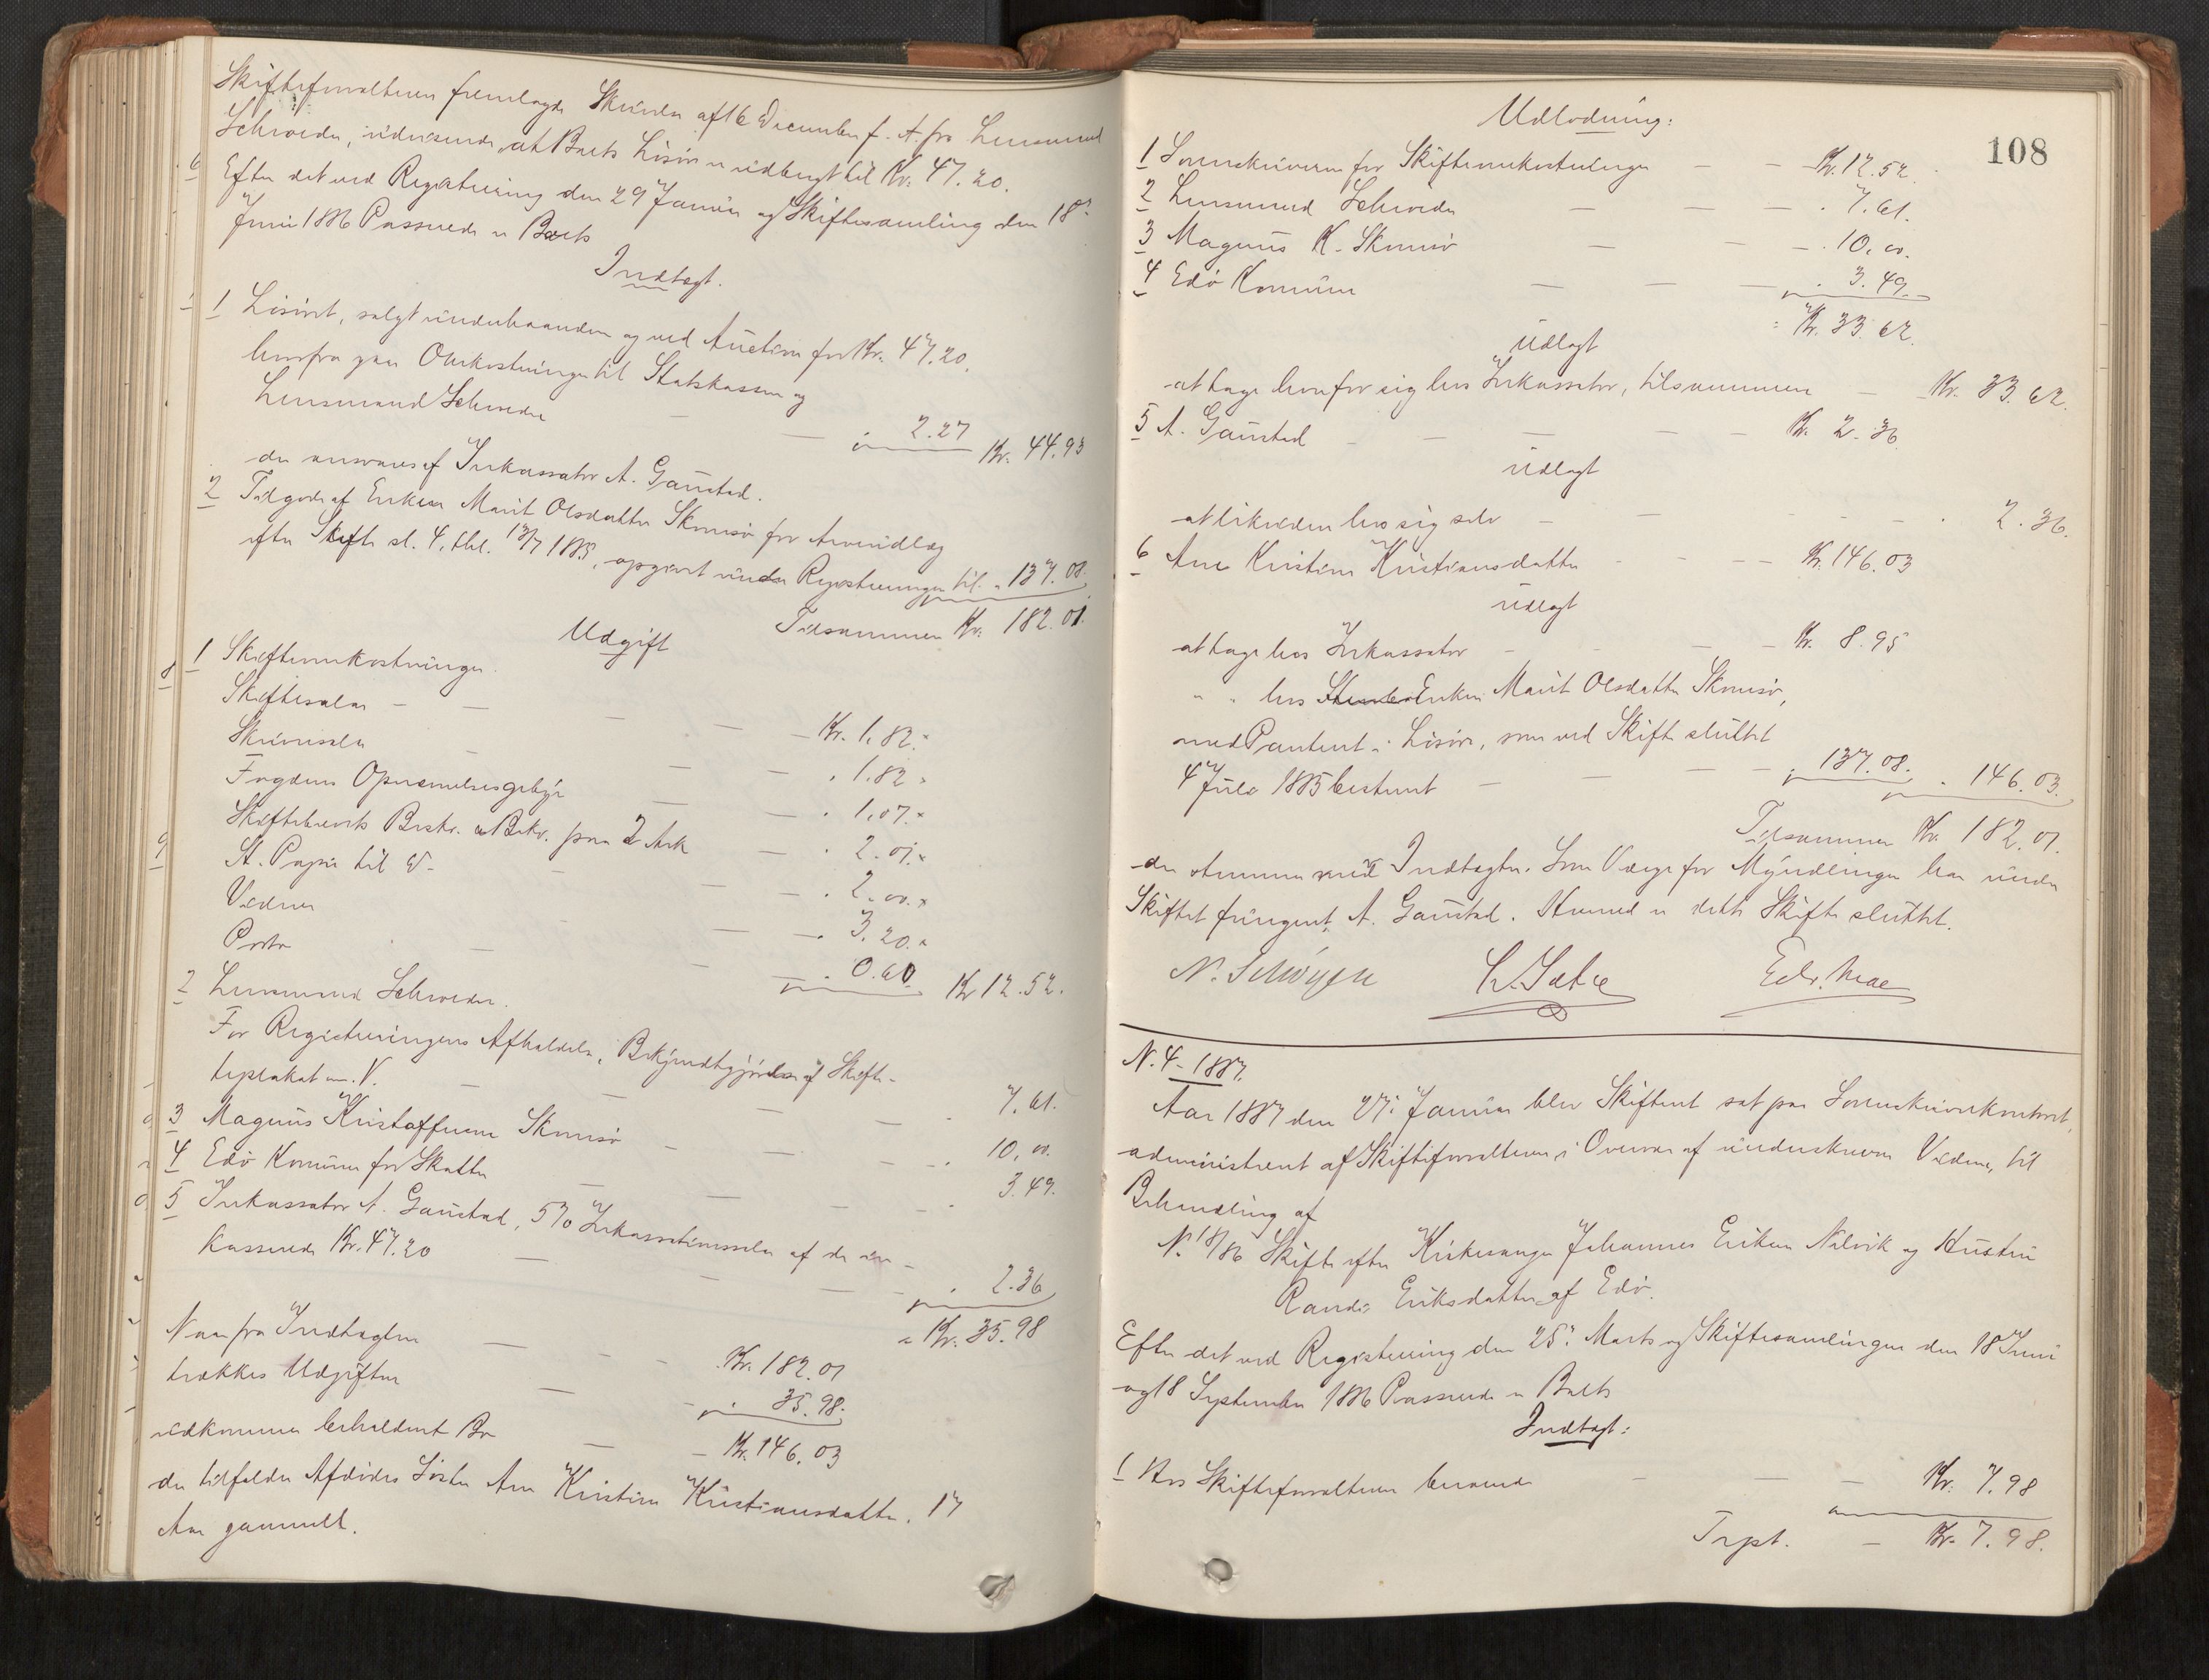 Skifteforvalteren fremlagde Skrivelse af 16 December f. A. fra Lensmand
Schrøder, udvisende, at Boets Løsøre er udbragt til Kr. 47.20.
Efter det ved Registrering den 29 Januar og Skiftesamling den 18de
Juni 1886 Passerede er Boets
Indtægt.
1 Løsøret, solgt underhaanden og ved Auction for Kr. 47.20.
hvorfra gaar Omkostninger til Statskassen og
Lensmand Schrøder — 2.27 Kr. 44.93
der ansvares af Inkassator A. Gaustad.
2 Tilgode af Enken Marit Olsdatter Skomsø for Arveudlæg
efter Skifte sl. 4, tbl. 13/7 1885, opgivet under Registreringen til " 137.08.
Tilsammen Kr. 182.01.
Udgift
1 Skifteomkostninger.
Skiftesalær — — — Kr. 1.82.
Skriversalær — — . 1.82.
Fogdens Opnævnelsesgebyr — — . 1.07.
Skiftebrevets Beskr. & Bekr. paa 2 Ark — . 2.01.
St. Papir til D. — — . 2.00.
Vidner — — . 3.20.
Porto — — . 0.60. Kr 12.52.
2 Lensmand Schrøder.
For Registreringens Afholdelse, Bekjendtgjørelse af Skifte-
teplakat m. V. — — — . 7.61.
3 Magnus Kristoffersen Skomsø — — . 10.00.
4 Edø Komune for Skatter — — . 3.49.
5 Inkassator A. Gaustad, 5% Inkassationssalær af de in-
kasserede Kr. 47.20 — — . 2.36
Kr. 35.98
Naar fra Indtægten — Kr. 182.01
trækkes Udgiften — . 35.98.
udkommer beholdent Bo — Kr. 146.03
der tilfalder Afdødes Søster Ane Kristine Kristiansdatter, 17
Aar gammel.
108
Udlodning:
1 Sorenskriveren for Skifteomkostninger — — Kr. 12.52.
2 Lensmand Schrøder — — — . 7.61.
3 Magnus K. Skomsø — — — . 10.00.
4 Edø Komune — — — . 3.49.
Kr. 33.62.
Udlagt
at tage hver for sig hos Inkassator, tilsammen — Kr. 33.62.
5 A. Gaustad — — — — Kr. 2.36
Udlagt
at likvidere hos sig selv — — — . 2.36.
6 Ane Kristine Kristiansdatter — — Kr. 146.03
Udlagt
at tage hos Inkassator — — Kr. 8.95
" " hos Enken Marit Olsdatter Skomsø,
med Panteret i Løsøre, som ved Skifte sluttet
4 Juli 1885 bestemt — — — . 137.08. . 146.03.
Tilsammen Kr. 182.01.
der stemmer med Indtægten. Som Værge for Myndlingen har under
Skiftet fungeret A. Gaustad. Hermed er dette Skifte sluttet.
N. Schöyen
Edv. Moe
N. 4 - 1887.
Aar 1887 den 27. Januar blev Skifteret sat paa Sorenskriverkontoret,
administreret af Skifteforvalteren i Overvær af underskrevne Vidner, til
Behandling af
N. 18/86 Skifte efter Kirkesanger Johannes Eriksen Nalvik og Hustru
Randi Eriksdatter af Edø.
Efter det ved Registrering den 25. Marts og Skiftesamlingen den 18 Juni
og 18 September 1886 Passerede er Boets
Indtægt:
1 Hos Skifteforvalteren beroende — — — Kr. 7.98
Trpt. — Kr. 7.98.